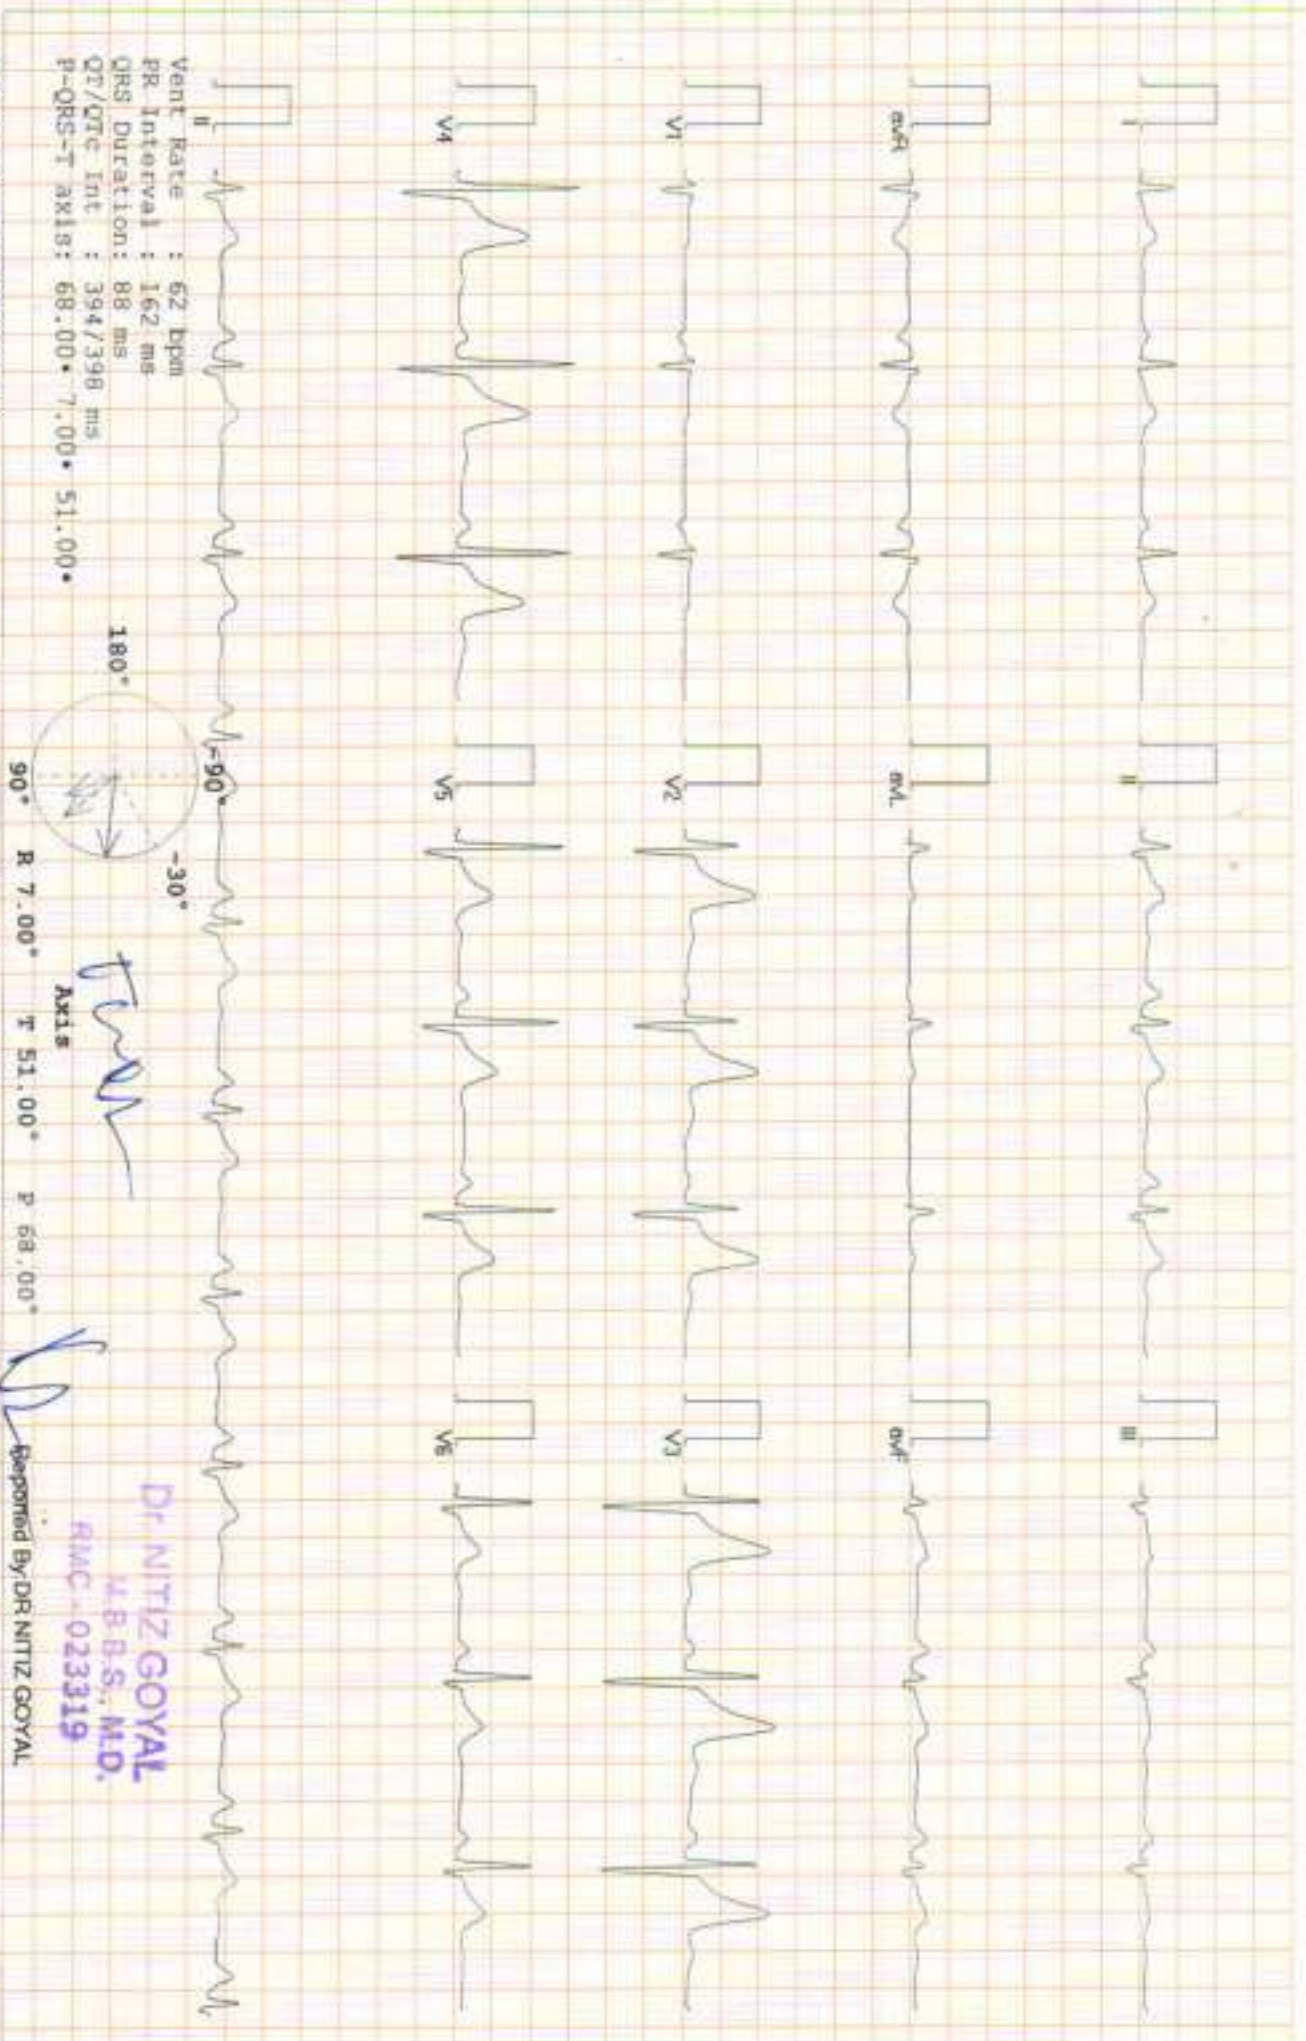 I
II
III
avR
avL
avF
V1
V2
V3
V4
V5
V6
II
Vent Rate : 62 bpm
PR Interval : 162 ms
QRS Duration: 88 ms
QT/QTc Int : 394/398 ms
P-QRS-T axis: 68.00• 7.00• 51.00•
-90°
-30°
180°
90°
Axis
R 7.00° T 51.00° P 68.00°
Dr. NITIZ GOYAL
M.B.B.S., M.D.
RMC.-023319
Reported By:DR NITIZ GOYAL